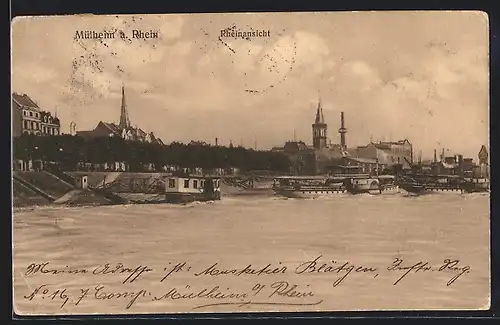 Mülheim a. Rhein
Rheinansicht
Meine Adresse ist: Musketier Blätgen, Reg.
No 16, 7 Comp. Mülheim a/ Rhein